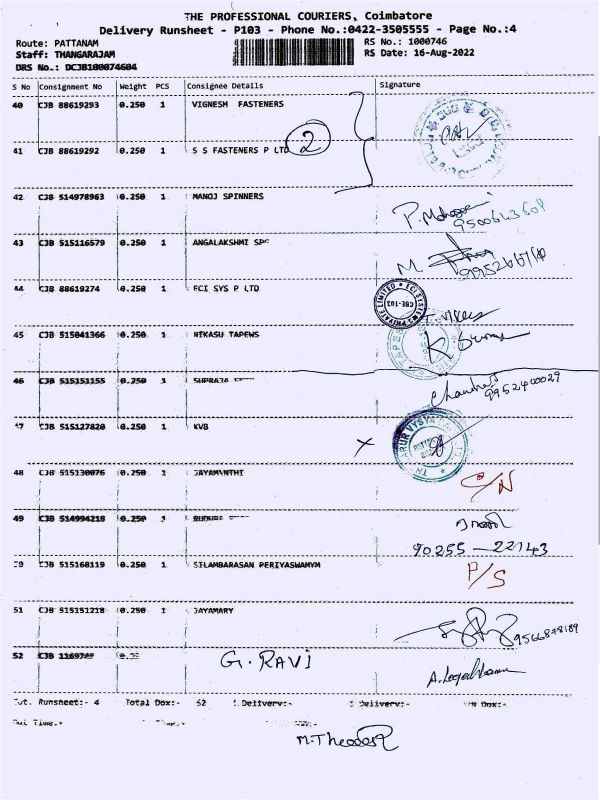 THE PROFESSIONAL COURIERS, Coimbatore
Delivery Runsheet - P103 - Phone No.:0422-3505555 - Page No.:4
Route: PATTANAM RS No.: 1000746
Staff: THANGARAJAM RS Date: 16-Aug-2022
DRS No.: DCJB100074604
S No Consignment No Weight PCS Consignee Details Signature
40 CJB 88619293 0.250 1 VIGNESH FASTENERS
41 CJB 88619292 0.250 1 S S FASTENERS P LTD 2
42 CJB 514978963 0.250 1 MANOJ SPINNERS
9500643608
43 CJB 515116579 0.250 1 ANGALAKSHMI
M
44 CJB 88619274 0.250 1 ECI SYS P LTD
CBE-103
45 CJB 515041366 0.250 1 NIKASU TAPEWS
46 CJB 515151155 0.250 1 SUPRAJA
9952400029
47 CJB 515127820 0.250 1 KVB
X
48 CJB 515130076 0.250 1 JAYAMANTHI C/N
49 CJB 514994218 0.250 1
90255-22143
CJB 515168119 0.250 1 SILAMBARASAN PERIYASWAMYM P/S
51 CJB 515151218 0.250 1 JAYAMARY
52 CJB G. RAVI
Tot. Runsheet:- 4 Total Dox:- 52